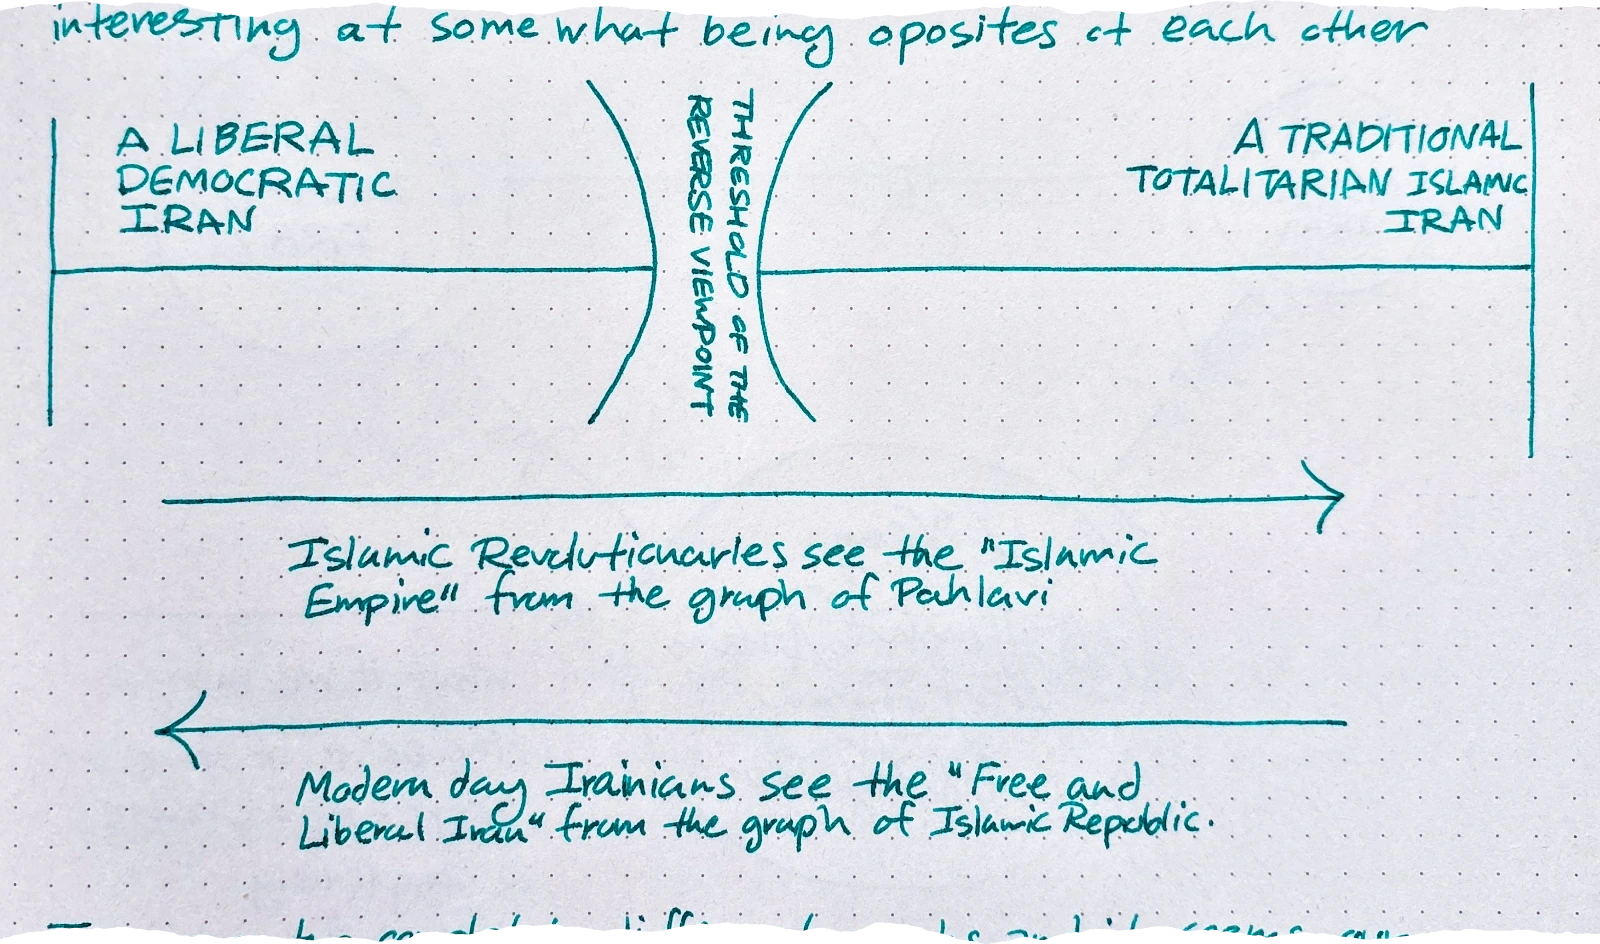 interesting at some what being oposites of each other
A LIBERAL
DEMOCRATIC
IRAN
THRESHOLD OF THE
REVERSE VIEWPOINT
A TRADITIONAL
TOTALITARIAN ISLAMIC
IRAN
Islamic Revolutionaries see the "Islamic
Empire" from the graph of Pahlavi
Modern day Irainians see the "Free and
Liberal Iran" from the graph of Islamic Republic.